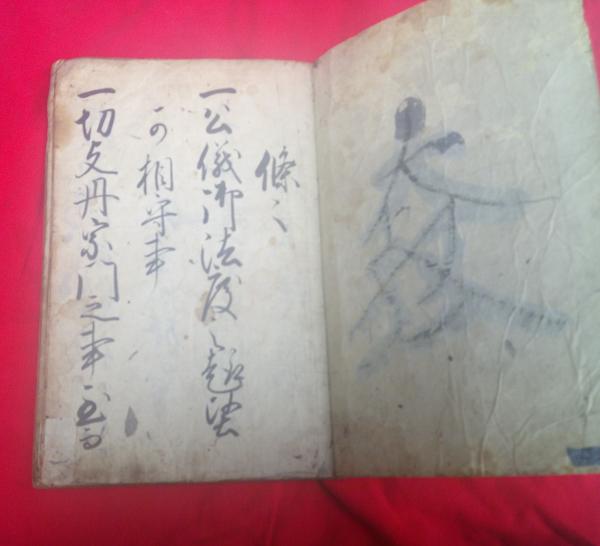 條々
一公儀御法度之趣堅
可相守事
一切支丹宗門之事